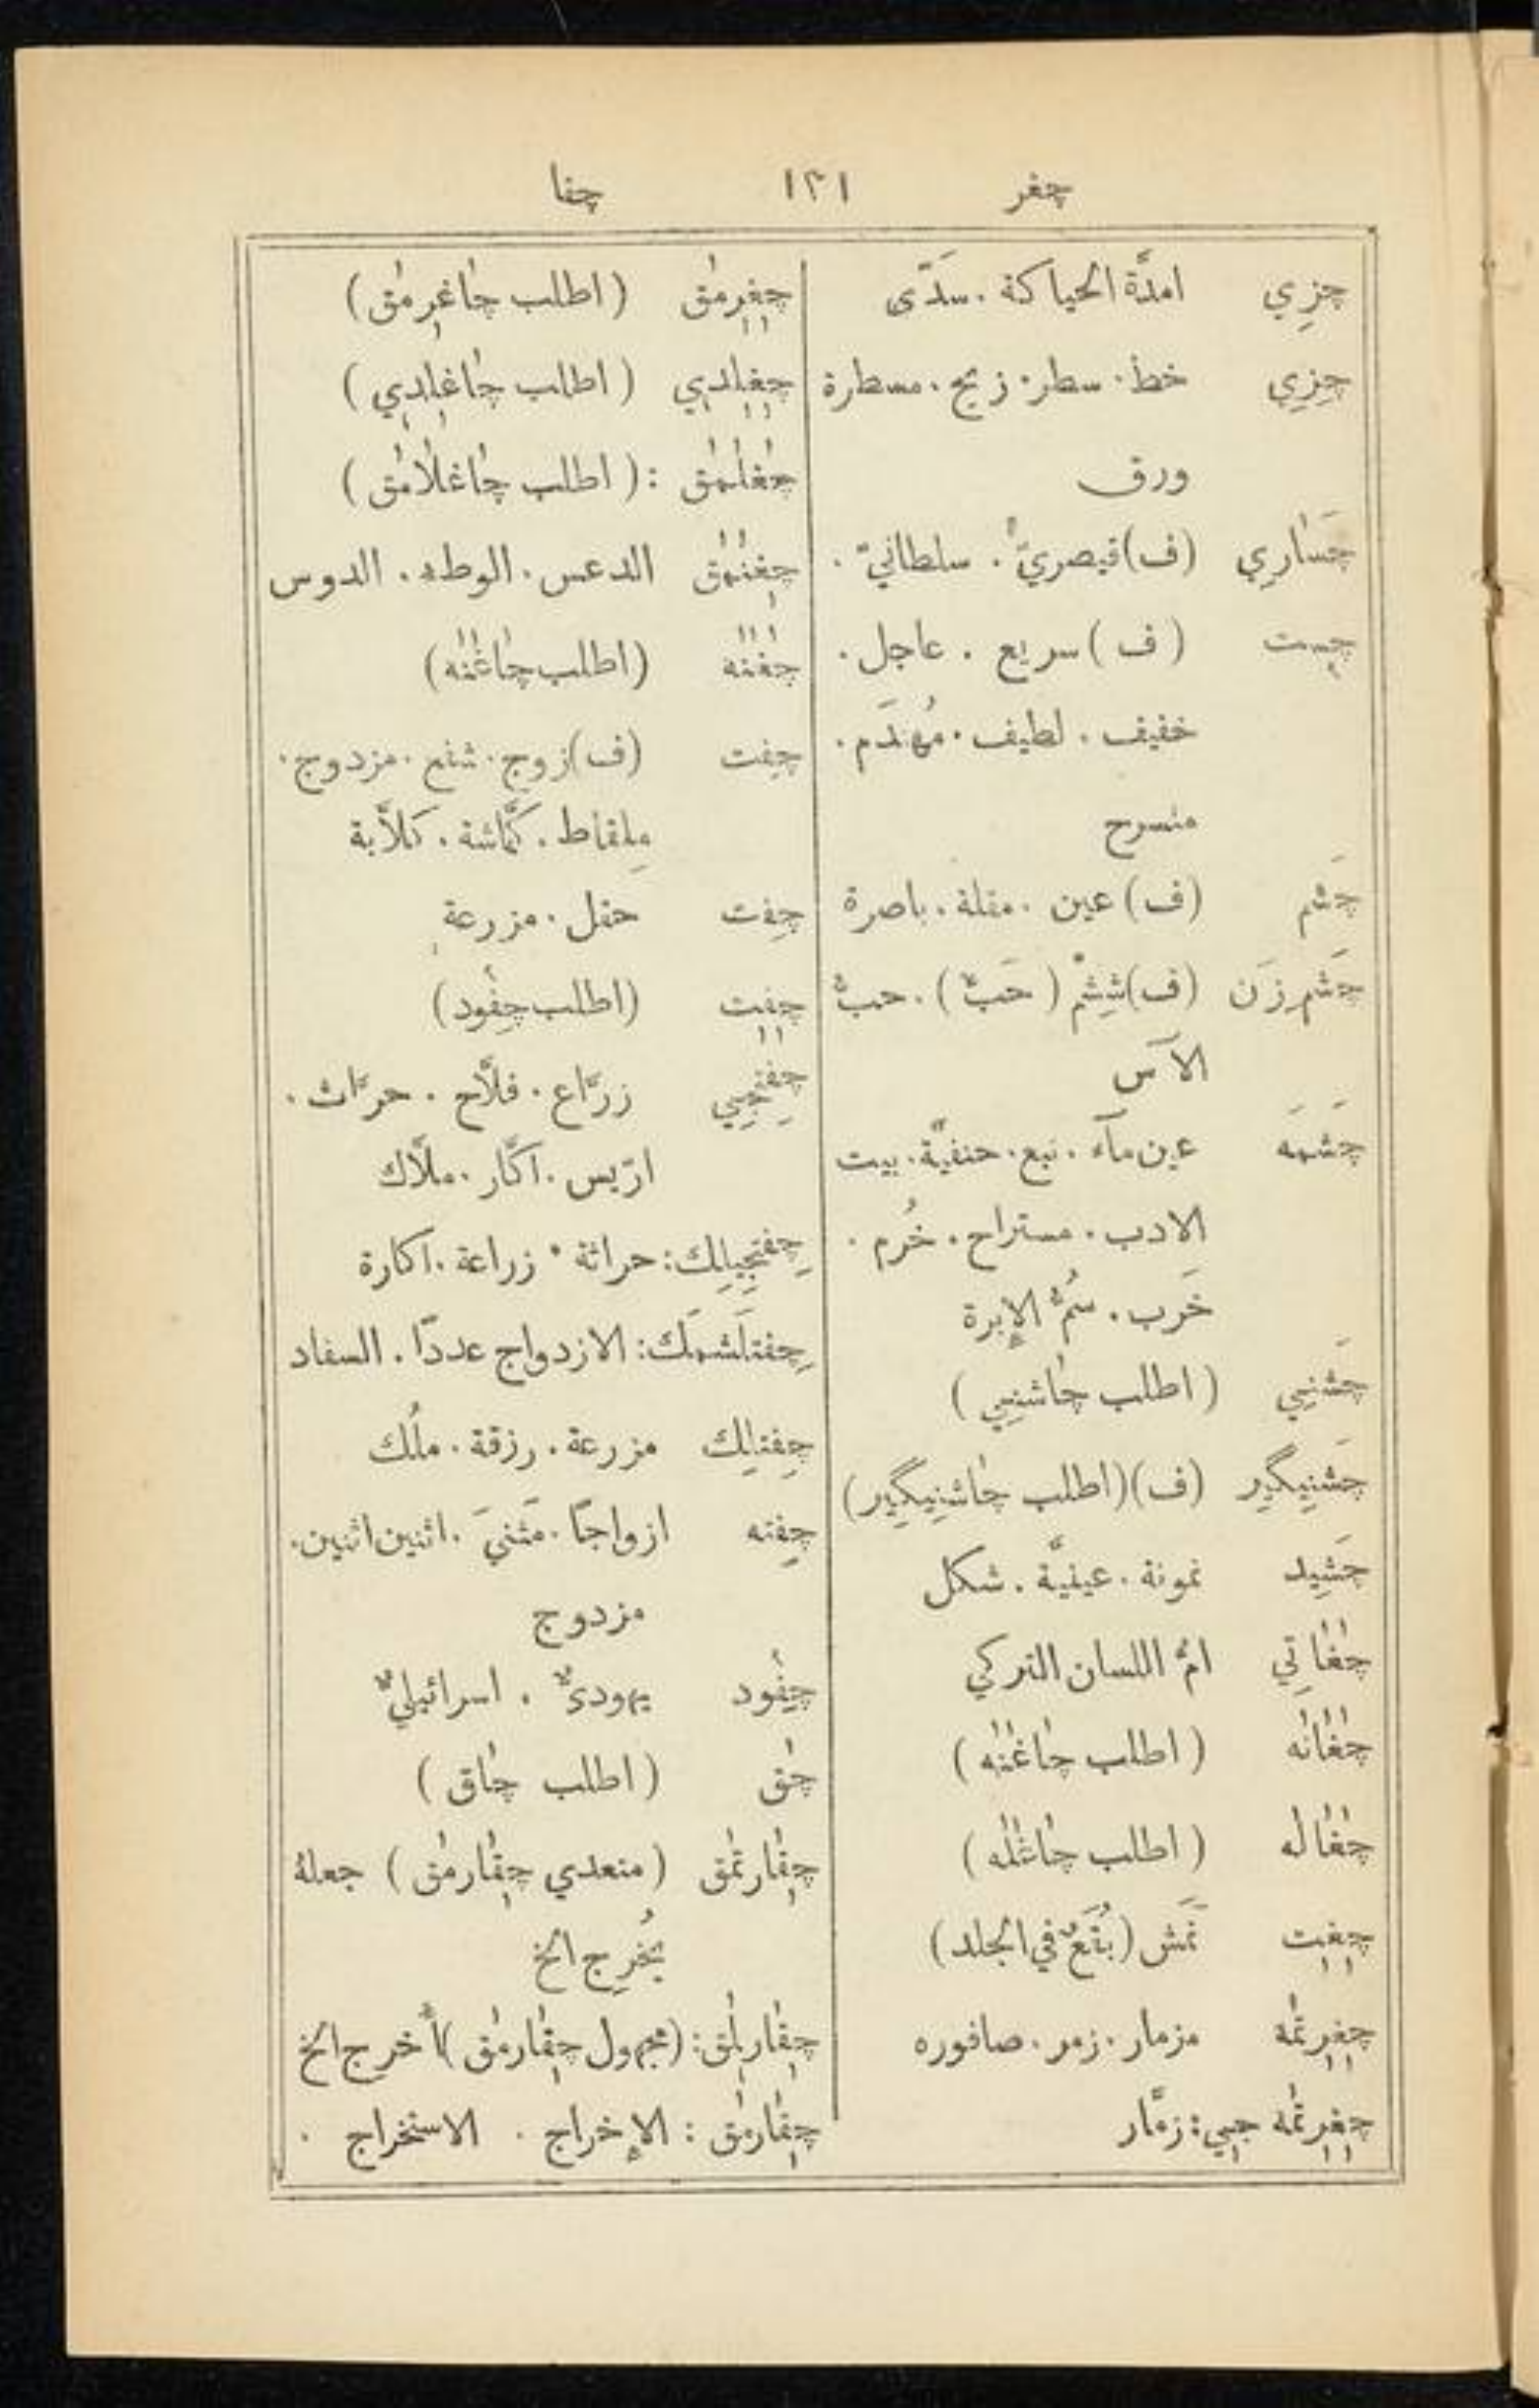 چغر ١٢١ چقا
چزِي امدَّة الحياكة . سَدّى
چِزِي خط . سطر . زيج . مسطارة
ورق
چَساري (ف) قيصريّ . سلطانيّ .
چست (ف) سريع . عاجل .
خفيف . لطيف . مُهندَم .
منسرح
چَشم (ف) عين . مقلة . باصرة
چَشم زَن (ف) شِشْم (حَبٌّ) . حبُّ
الآس
چَشمَه عين مآء . نبع . حنفيَّة . بيت
الادب . مستراح . خُرم .
خَرب . سُمُّ الإبرة
چَشنِيي (اطلب چاشنِيي)
چَشنِيگِير (ف) (اطلب چاشنِيگِير)
چَشِيد نمونة . عينيَّة . شكل
چغاتِي امُّ اللسان التركي
چغانه (اطلب چاغنه)
چغاله (اطلب چاغله)
چغت نَمَش (بُقَعٌ في الجلد)
چغرتمه مزمار . زمر . صافوره
چغرتمه جي : زمَّار
چغرمق (اطلب چاغرمق)
چغلدي (اطلب چاغلدي)
چغلمق : (اطلب چاغلامق)
چغنمق الدعس . الوطء . الدوس
چغنه (اطلب چاغنه)
چِفت (ف) زوج . شفع . مزدوج .
مِلقاط . كمَّاشة . كلاَّبة
چِفت حقل . مزرعة
چفت (اطلب چِفُود)
چِفتجِيي زرَّاع . فلاَّح . حرَّاث .
ارّيس . اكَّار . ملاَّك
چِفتجِيلِك : حراثة . زراعة . اكارة
چِفتلَشمَك : الازدواج عددًا . السفاد
چِفتلِك مزرعة . رزقة . ملُك
چِفته ازواجًا . مَثنىَ . اثنين اثنين .
مزدوج
چِيفُود يهوديٌّ . اسرائيليٌّ
چق (اطلب چاق)
چقارتمق (متعدي چقارمق) جعلهُ
يُخرِج الخ
چقارلمق : (مجهول چقارمق) أُخرج الخ
چقارمق : الإخراج . الاستخراج .